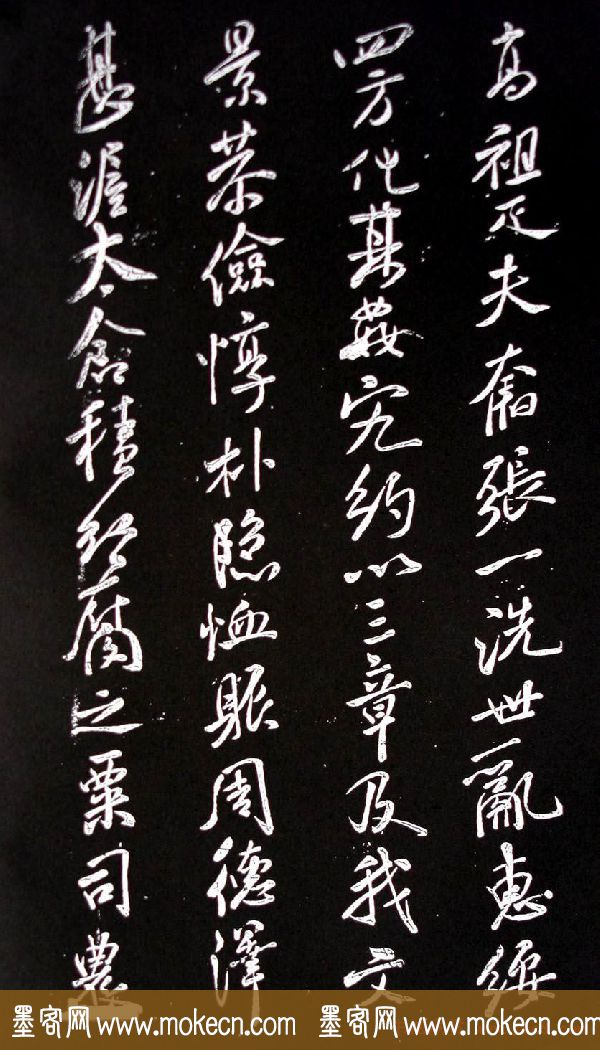 高祖疋夫奮張一洗世亂惠綏
四方化其姦宄約以三章及我文
景恭儉惇朴隱恤賑周德澤
甚太倉積紅腐之粟司農
墨客网 www.mokecn.com 墨客网 www.mokecn.com